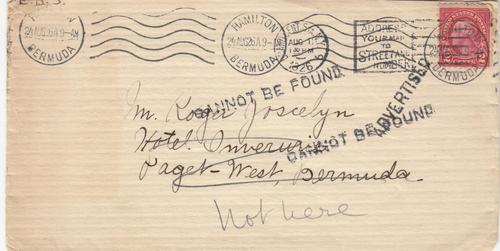 E.B.S.
HAMILTON
24 AUG 26 A 9-AM
BERMUDA
HAMILTON
24 AUG 26 A 9-
BERMUDA
AUG
1926
ADDRESS
YOUR MAIL
TO
STREET AND
NUMBER
BERMUDA
CANNOT BE FOUND
ADVERTISED
CANNOT BE FOUND
M. Roger Joscelyn
Hotel Inverurie
Paget-West, Bermuda.
Not here